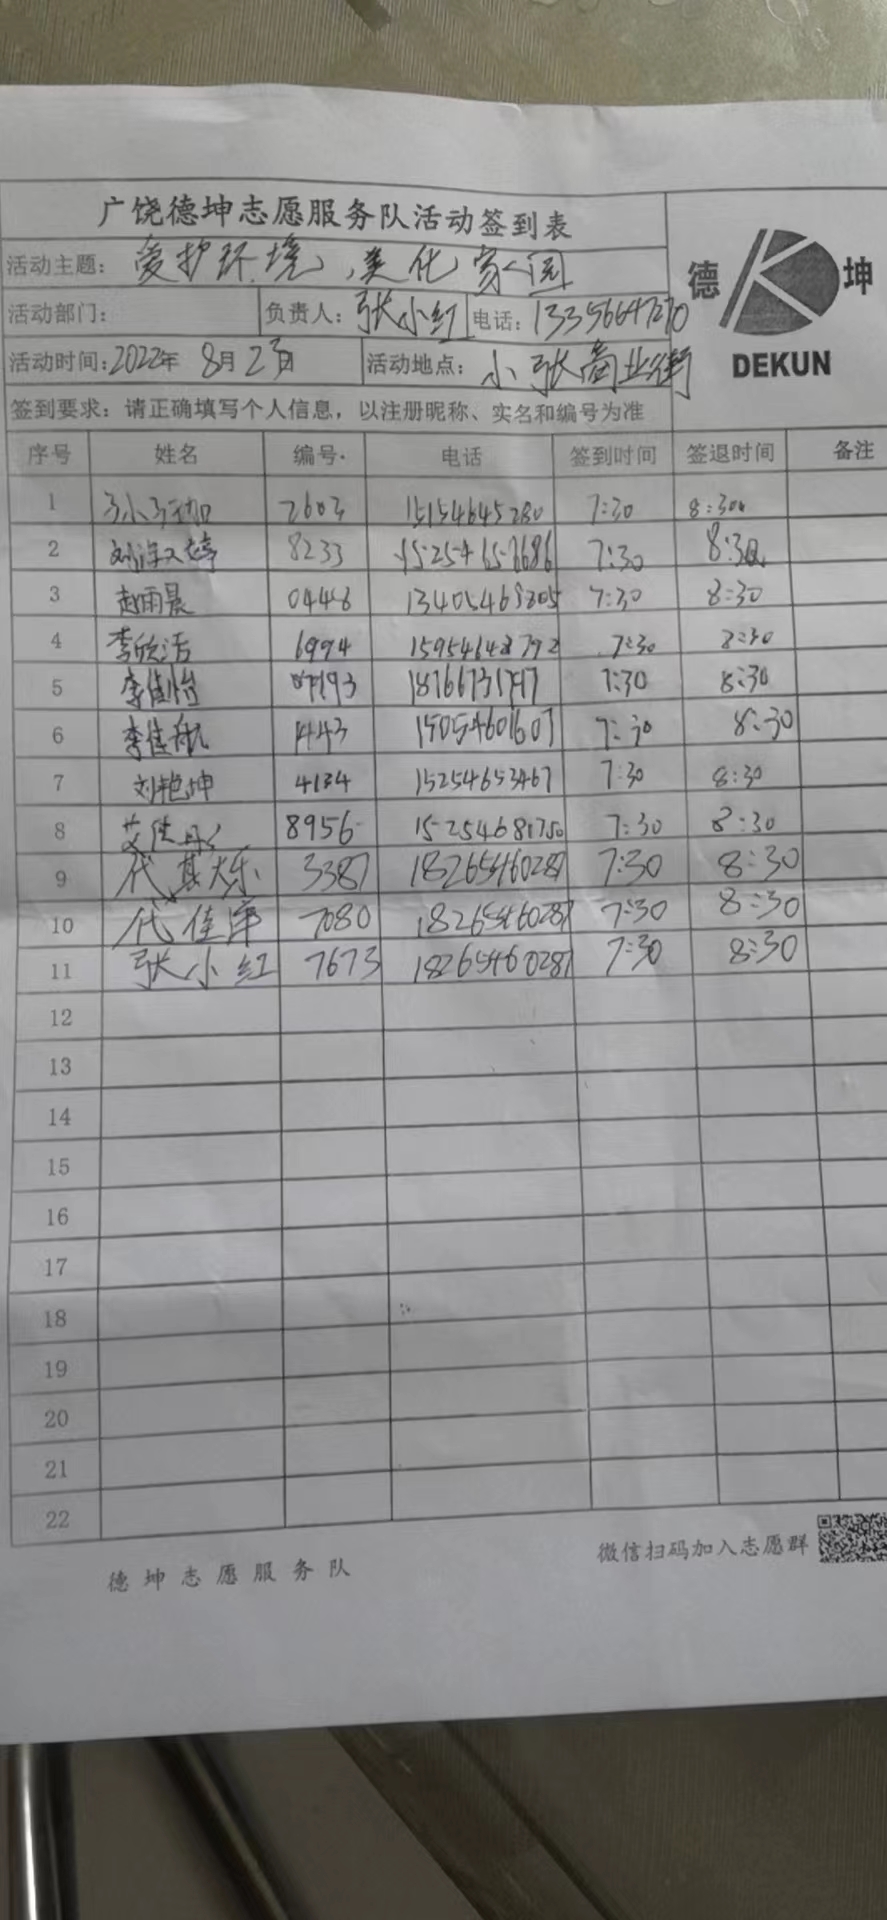 广饶德坤志愿服务队活动签到表
德 坤
DEKUN
活动主题: 爱护环境,美化家园
活动部门: 负责人: 张小红 电话: 13356647270
活动时间: 2022年 8月23日 活动地点: 小张商业街
签到要求: 请正确填写个人信息, 以注册昵称、实名和编号为准
序号 姓名 编号. 电话 签到时间 签退时间 备注
1 2603 15154645280 7:30 8:30
2 8233 7:30 8:30
3 赵雨晨 0448 7:30 8:30
4 李欣洁 6994 7:30 8:30
5 李佳怡 18766731797 7:30 8:30
6 李佳航 1443 15054601607 7:30 8:30
7 刘艳坤 4134 15254653467 7:30 8:30
8 8956 15254681750 7:30 8:30
9 代其乐 3387 18265460287 7:30 8:30
10 代佳 7080 18265460287 7:30 8:30
11 张小红 7673 18265460287 7:30 8:30
12
13
14
15
16
17
18
19
20
21
22
德坤志愿服务队
微信扫码加入志愿群